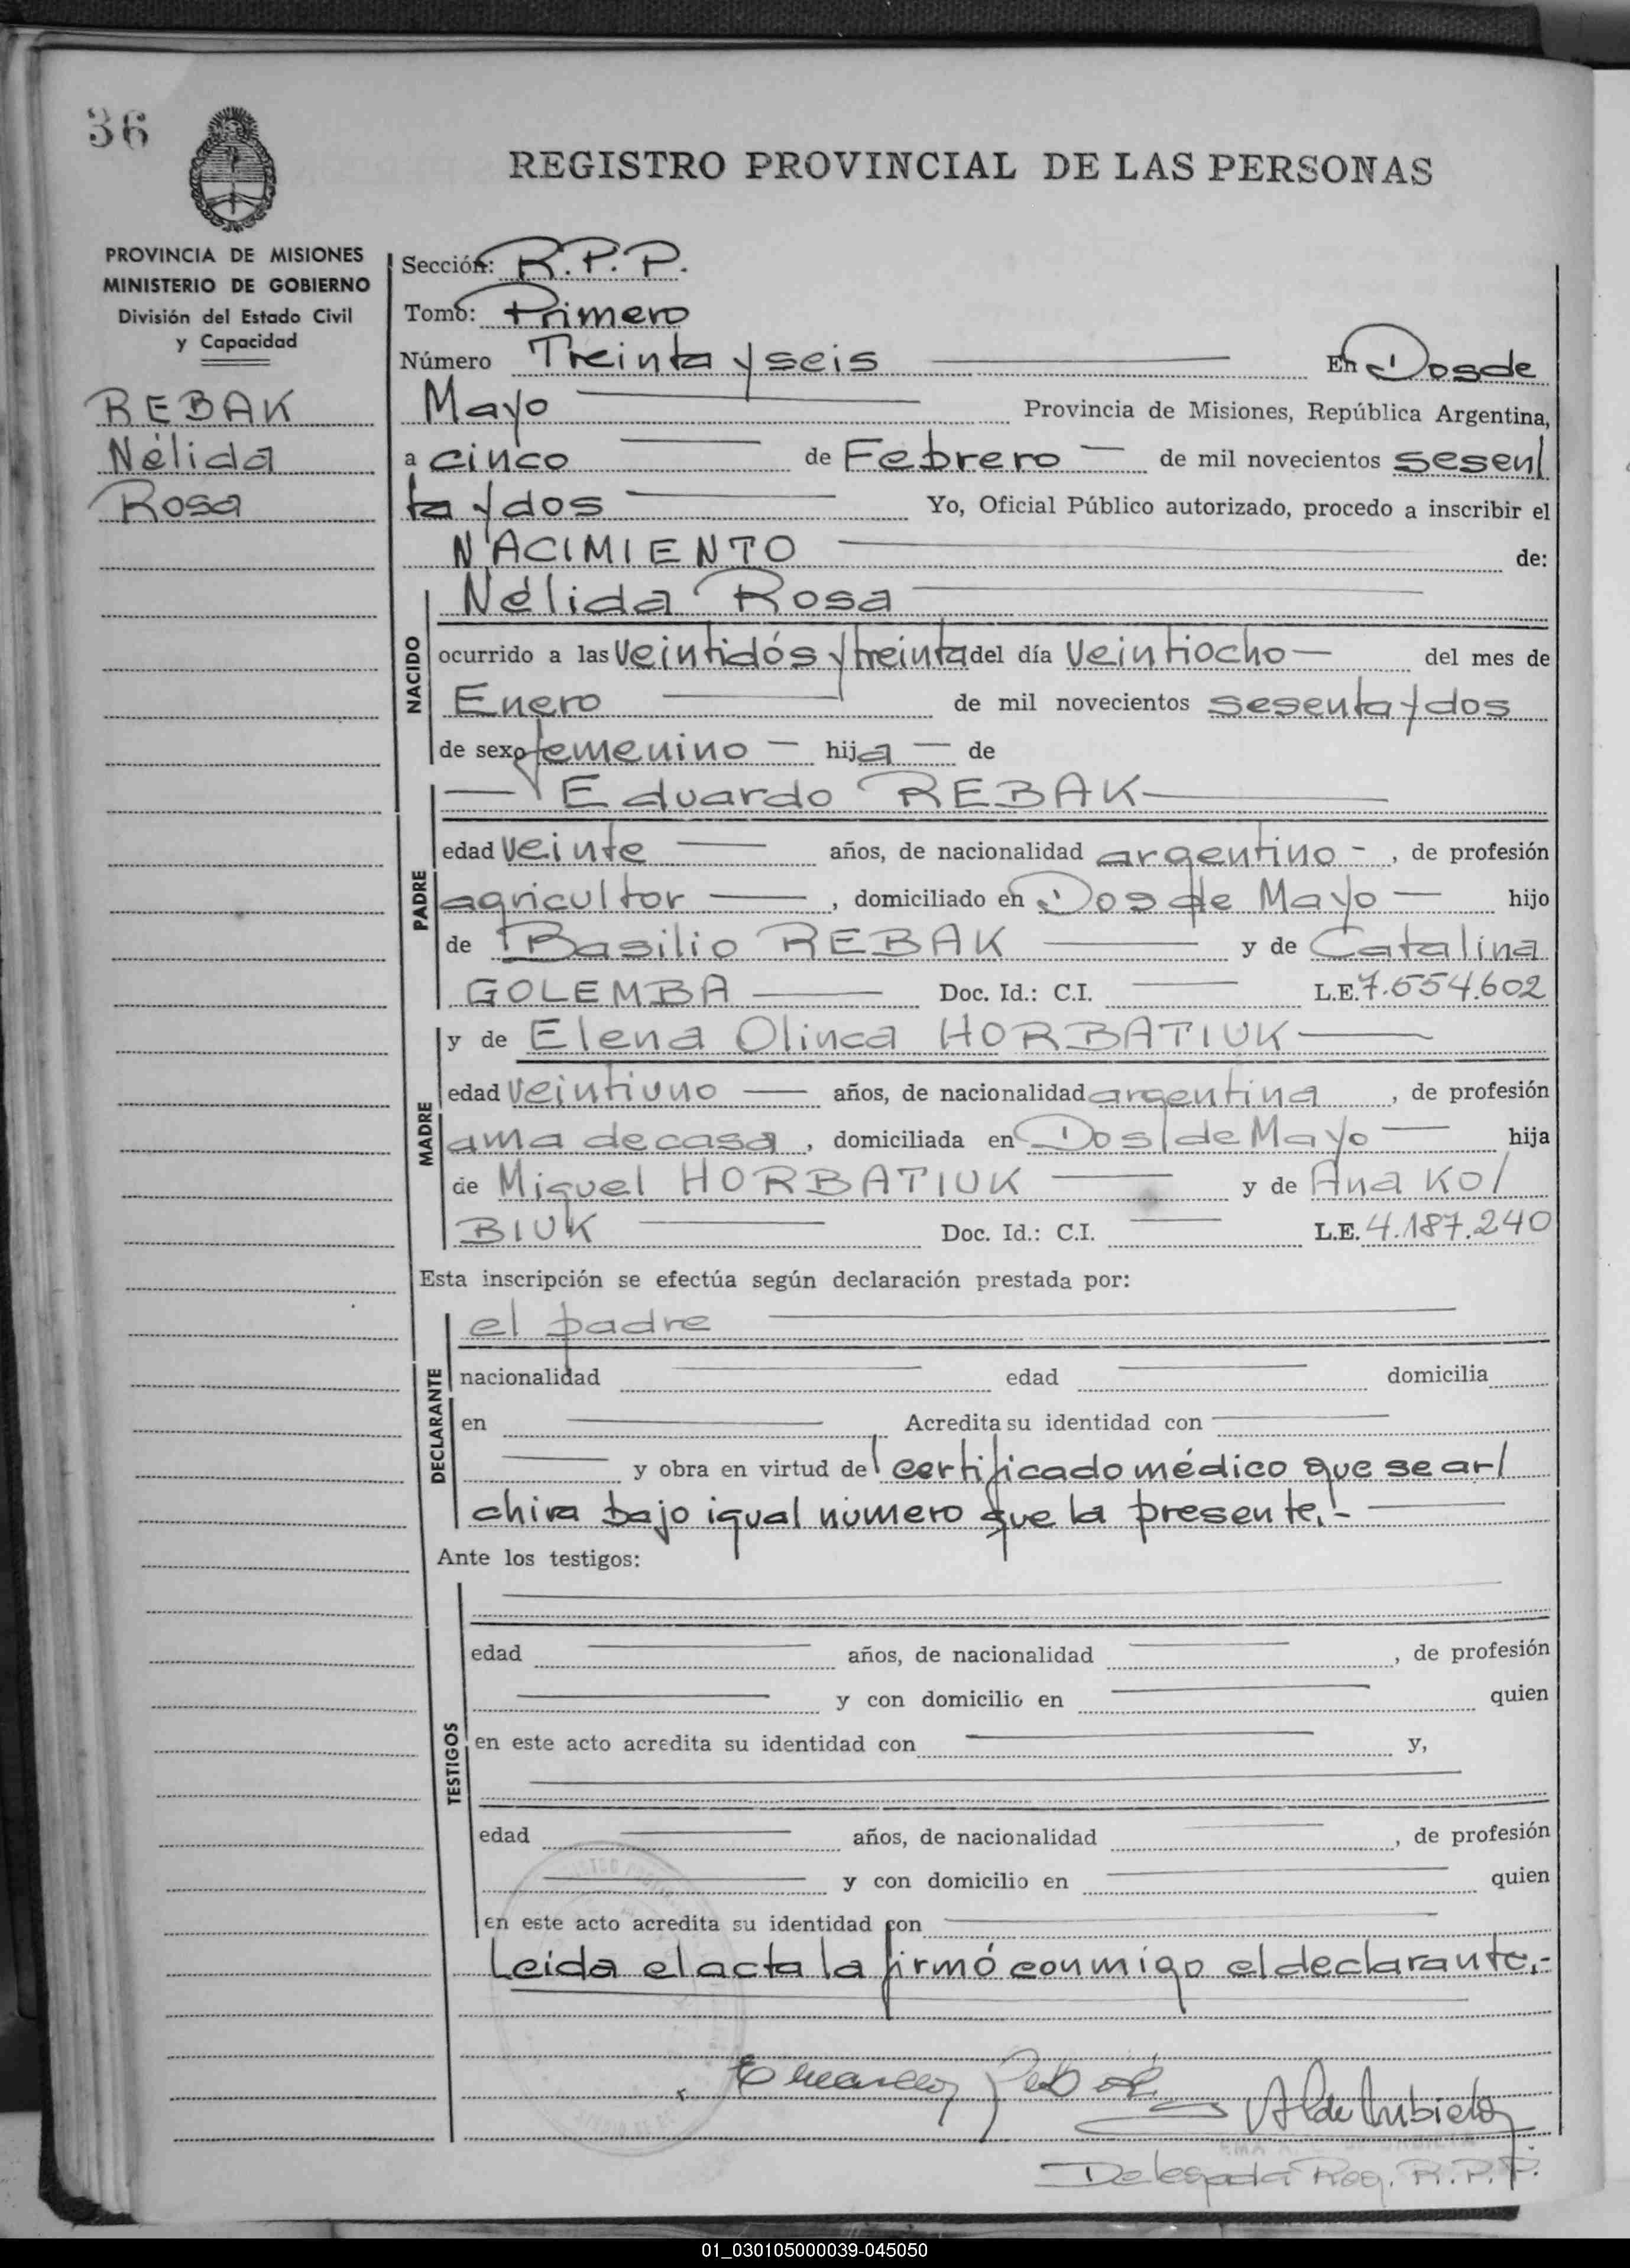 36
REGISTRO PROVINCIAL DE LAS PERSONAS
PROVINCIA DE MISIONES
MINISTERIO DE GOBIERNO
División del Estado Civil
y Capacidad
REBAK
Nélida
Rosa
Sección: R.P.P.
Tomo: Primero
Número Treinta y seis En Dos de
Mayo Provincia de Misiones, República Argentina,
a cinco de Febrero de mil novecientos sesen/
ta y dos Yo, Oficial Público autorizado, procedo a inscribir el
NACIMIENTO de:
NACIDO
Nélida Rosa
ocurrido a las veintidós y treinta del día veintiocho del mes de
Enero de mil novecientos sesenta y dos
de sexo femenino hija de
PADRE
Eduardo REBAK
edad veinte años, de nacionalidad argentino, de profesión
agricultor, domiciliado en Dos de Mayo hijo
de Basilio REBAK y de Catalina
GOLEMBA Doc. Id.: C.I. L.E. 7.554.602
MADRE
y de Elena Olinca HORBATIUK
edad veintiuno años, de nacionalidad argentina, de profesión
ama de casa, domiciliada en Dos de Mayo hija
de Miguel HORBATIUK y de Ana KOL/
BIUK Doc. Id.: C.I. L.E. 4.187.240
Esta inscripción se efectúa según declaración prestada por:
DECLARANTE
el padre
nacionalidad edad domicilia
en Acredita su identidad con
y obra en virtud del certificado médico que se ar/
chiva bajo igual número que la presente.-
Ante los testigos:
TESTIGOS
edad años, de nacionalidad , de profesión
y con domicilio en quien
en este acto acredita su identidad con y,
edad años, de nacionalidad , de profesión
y con domicilio en quien
en este acto acredita su identidad con
Leída el acta la firmó conmigo el declarante.-
Delegada Reg. R.P.P.
01_030105000039-045050